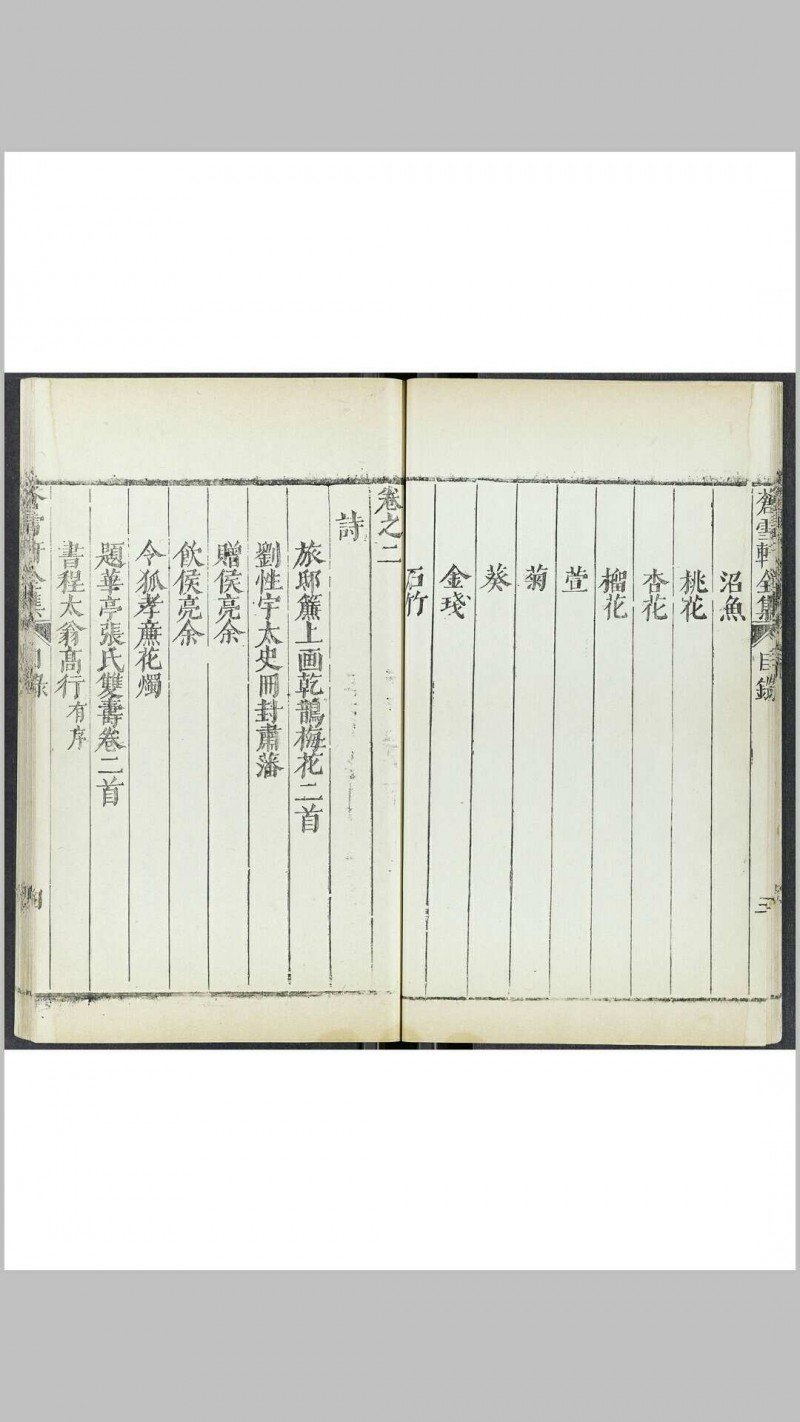 蒼雪軒全集
目錄
三
沼魚
桃花
杏花
榴花
萱
菊
葵
金琖
石竹
卷之二
詩
旅邸簾上画乾鵲梅花二首
劉性宇太史冊封肅藩
贈侯亮余
飲侯亮余
令狐孝亷花燭
題華亭張氏雙壽卷二首
書程太翁高行有序